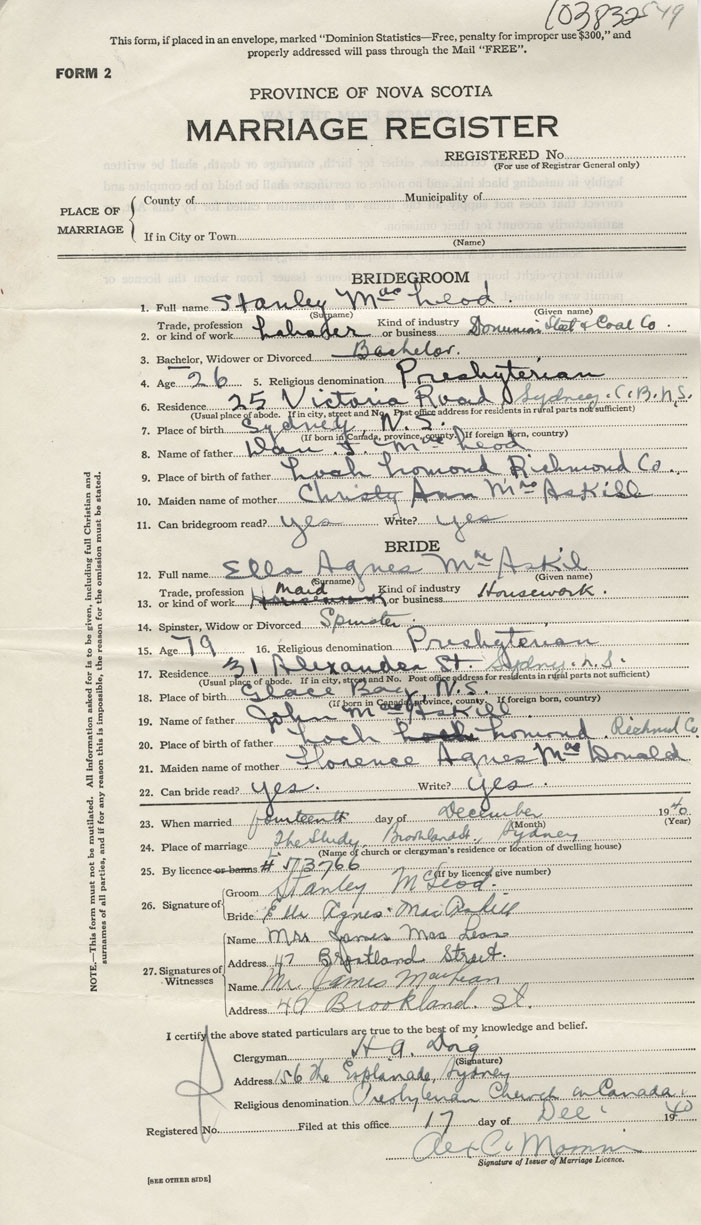 103832 549
This form, if placed in an envelope, marked "Dominion Statistics—Free, penalty for improper use $300," and
properly addressed will pass through the Mail "FREE".
FORM 2
PROVINCE OF NOVA SCOTIA
MARRIAGE REGISTER
REGISTERED No.
(For use of Registrar General only)
PLACE OF MARRIAGE
County of Municipality of
If in City or Town
(Name)
BRIDEGROOM
1. Full name Stanley MacLeod.
(Surname) (Given name)
2. Trade, profession or kind of work Labader Kind of industry or business Dominion Steel & Coal Co.
3. Bachelor, Widower or Divorced Bachelor.
4. Age 26 5. Religious denomination Presbyterian
6. Residence 25 Victoria Road Sydney. C.B.N.S.
(Usual place of abode. If in city, street and No. Post office address for residents in rural parts not sufficient)
7. Place of birth Sydney, N.S.
(If born in Canada, province, county. If foreign born, country)
8. Name of father Dan J. MacLeod.
9. Place of birth of father Loch Lomond Richmond Co.
10. Maiden name of mother Christy Ann MacAskill
11. Can bridegroom read? yes Write? yes
BRIDE
12. Full name Ella Agnes MacAskil
(Surname) (Given name)
13. Trade, profession or kind of work Maid Kind of industry or business Housework.
14. Spinster, Widow or Divorced Spinster.
15. Age 19 16. Religious denomination Presbyterian
17. Residence 31 Alexander St. Sydney. N.S.
(Usual place of abode. If in city, street and No. Post office address for residents in rural parts not sufficient)
18. Place of birth Glace Bay, N.S.
(If born in Canada, province, county. If foreign born, country)
19. Name of father John MacAskill
20. Place of birth of father Loch Loch Lomond Richmd Co.
21. Maiden name of mother Florence Agnes MacDonald
22. Can bride read? yes. Write? yes.
23. When married fourteenth day of December 1940.
(Month) (Year)
24. Place of marriage The Study, Brookland St., Sydney
(Name of church or clergyman's residence or location of dwelling house)
25. By licence or banns # 53766
(If by licence, give number)
26. Signature of
Groom Stanley McLeod.
Bride Ella Agnes MacAskill
27. Signatures of Witnesses
Name Mrs James MacLean
Address 47 Brookland Street.
Name Mr. James MacLean
Address 47 Brookland. St.
I certify the above stated particulars are true to the best of my knowledge and belief.
Clergyman H. A. Doig
(Signature)
Address 156 The Esplanade, Sydney
Religious denomination Presbyterian Church in Canada.
Registered No. Filed at this office 17 day of Dec. 1940
Alex C.
Signature of Issuer of Marriage Licence.
[SEE OTHER SIDE]
NOTE.—This form must not be mutilated. All information asked for is to be given, including full Christian and
surnames of all parties, and if for any reason this is impossible, the reason for the omission must be stated.